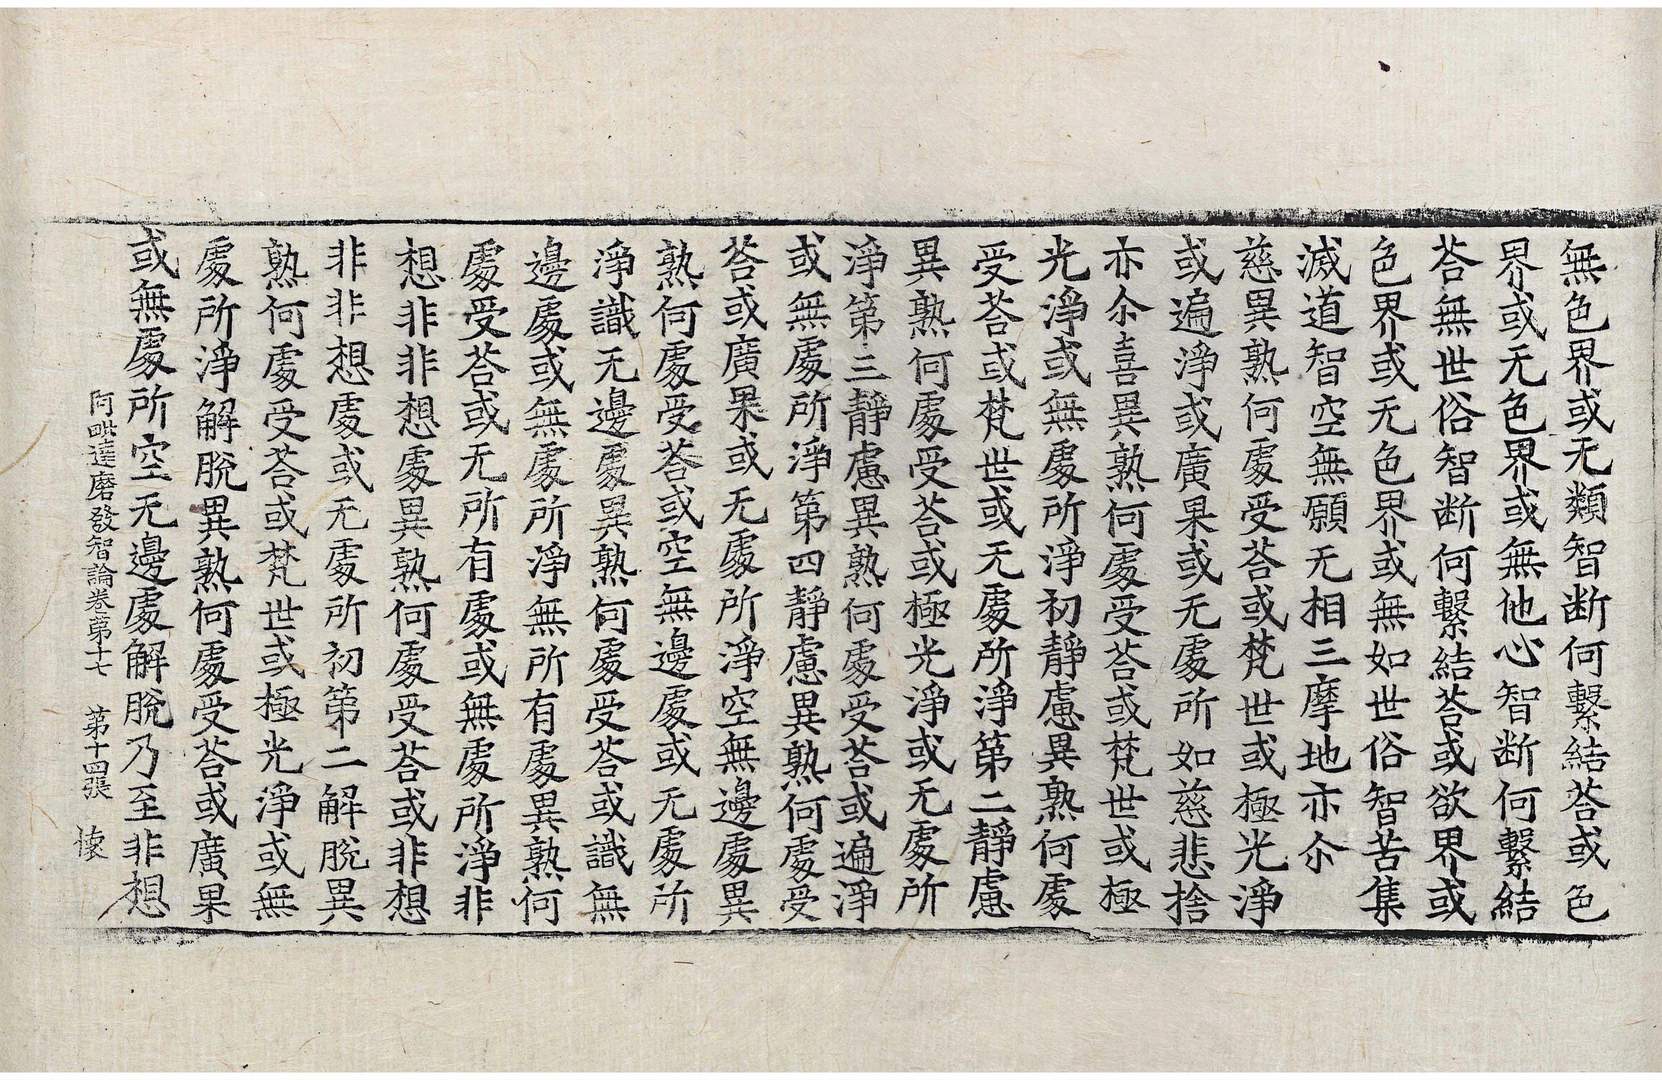 無色界或无類智断何繫結荅或色
界或无色界或無他心智断何繫結
荅無世俗智断何繫結荅或欲界或
色界或无色界或無如世俗智苦集
滅道智空無願无相三摩地亦尒
慈異熟何處受荅或梵世或極光淨
或遍淨或廣果或无處所如慈悲捨
亦尒喜異熟何處受荅或梵世或極
光淨或無處所淨初靜慮異熟何處
受荅或梵世或无處所淨第二靜慮
異熟何處受荅或極光淨或无處所
淨第三靜慮異熟何處受荅或遍淨
或無處所淨第四靜慮異熟何處受
荅或廣果或无處所淨空無邊處異
熟何處受荅或空無邊處或无處所
淨識无邊處異熟何處受荅或識無
邊處或無處所淨無所有處異熟何
處受荅或无所有處或無處所淨非
想非非想處異熟何處受荅或非想
非非想處或无處所初第二解脫異
熟何處受荅或梵世或極光淨或無
處所淨解脫異熟何處受荅或廣果
或無處所空无邊處解脫乃至非想
阿毗達磨發智論卷第十七 第十四張 懷